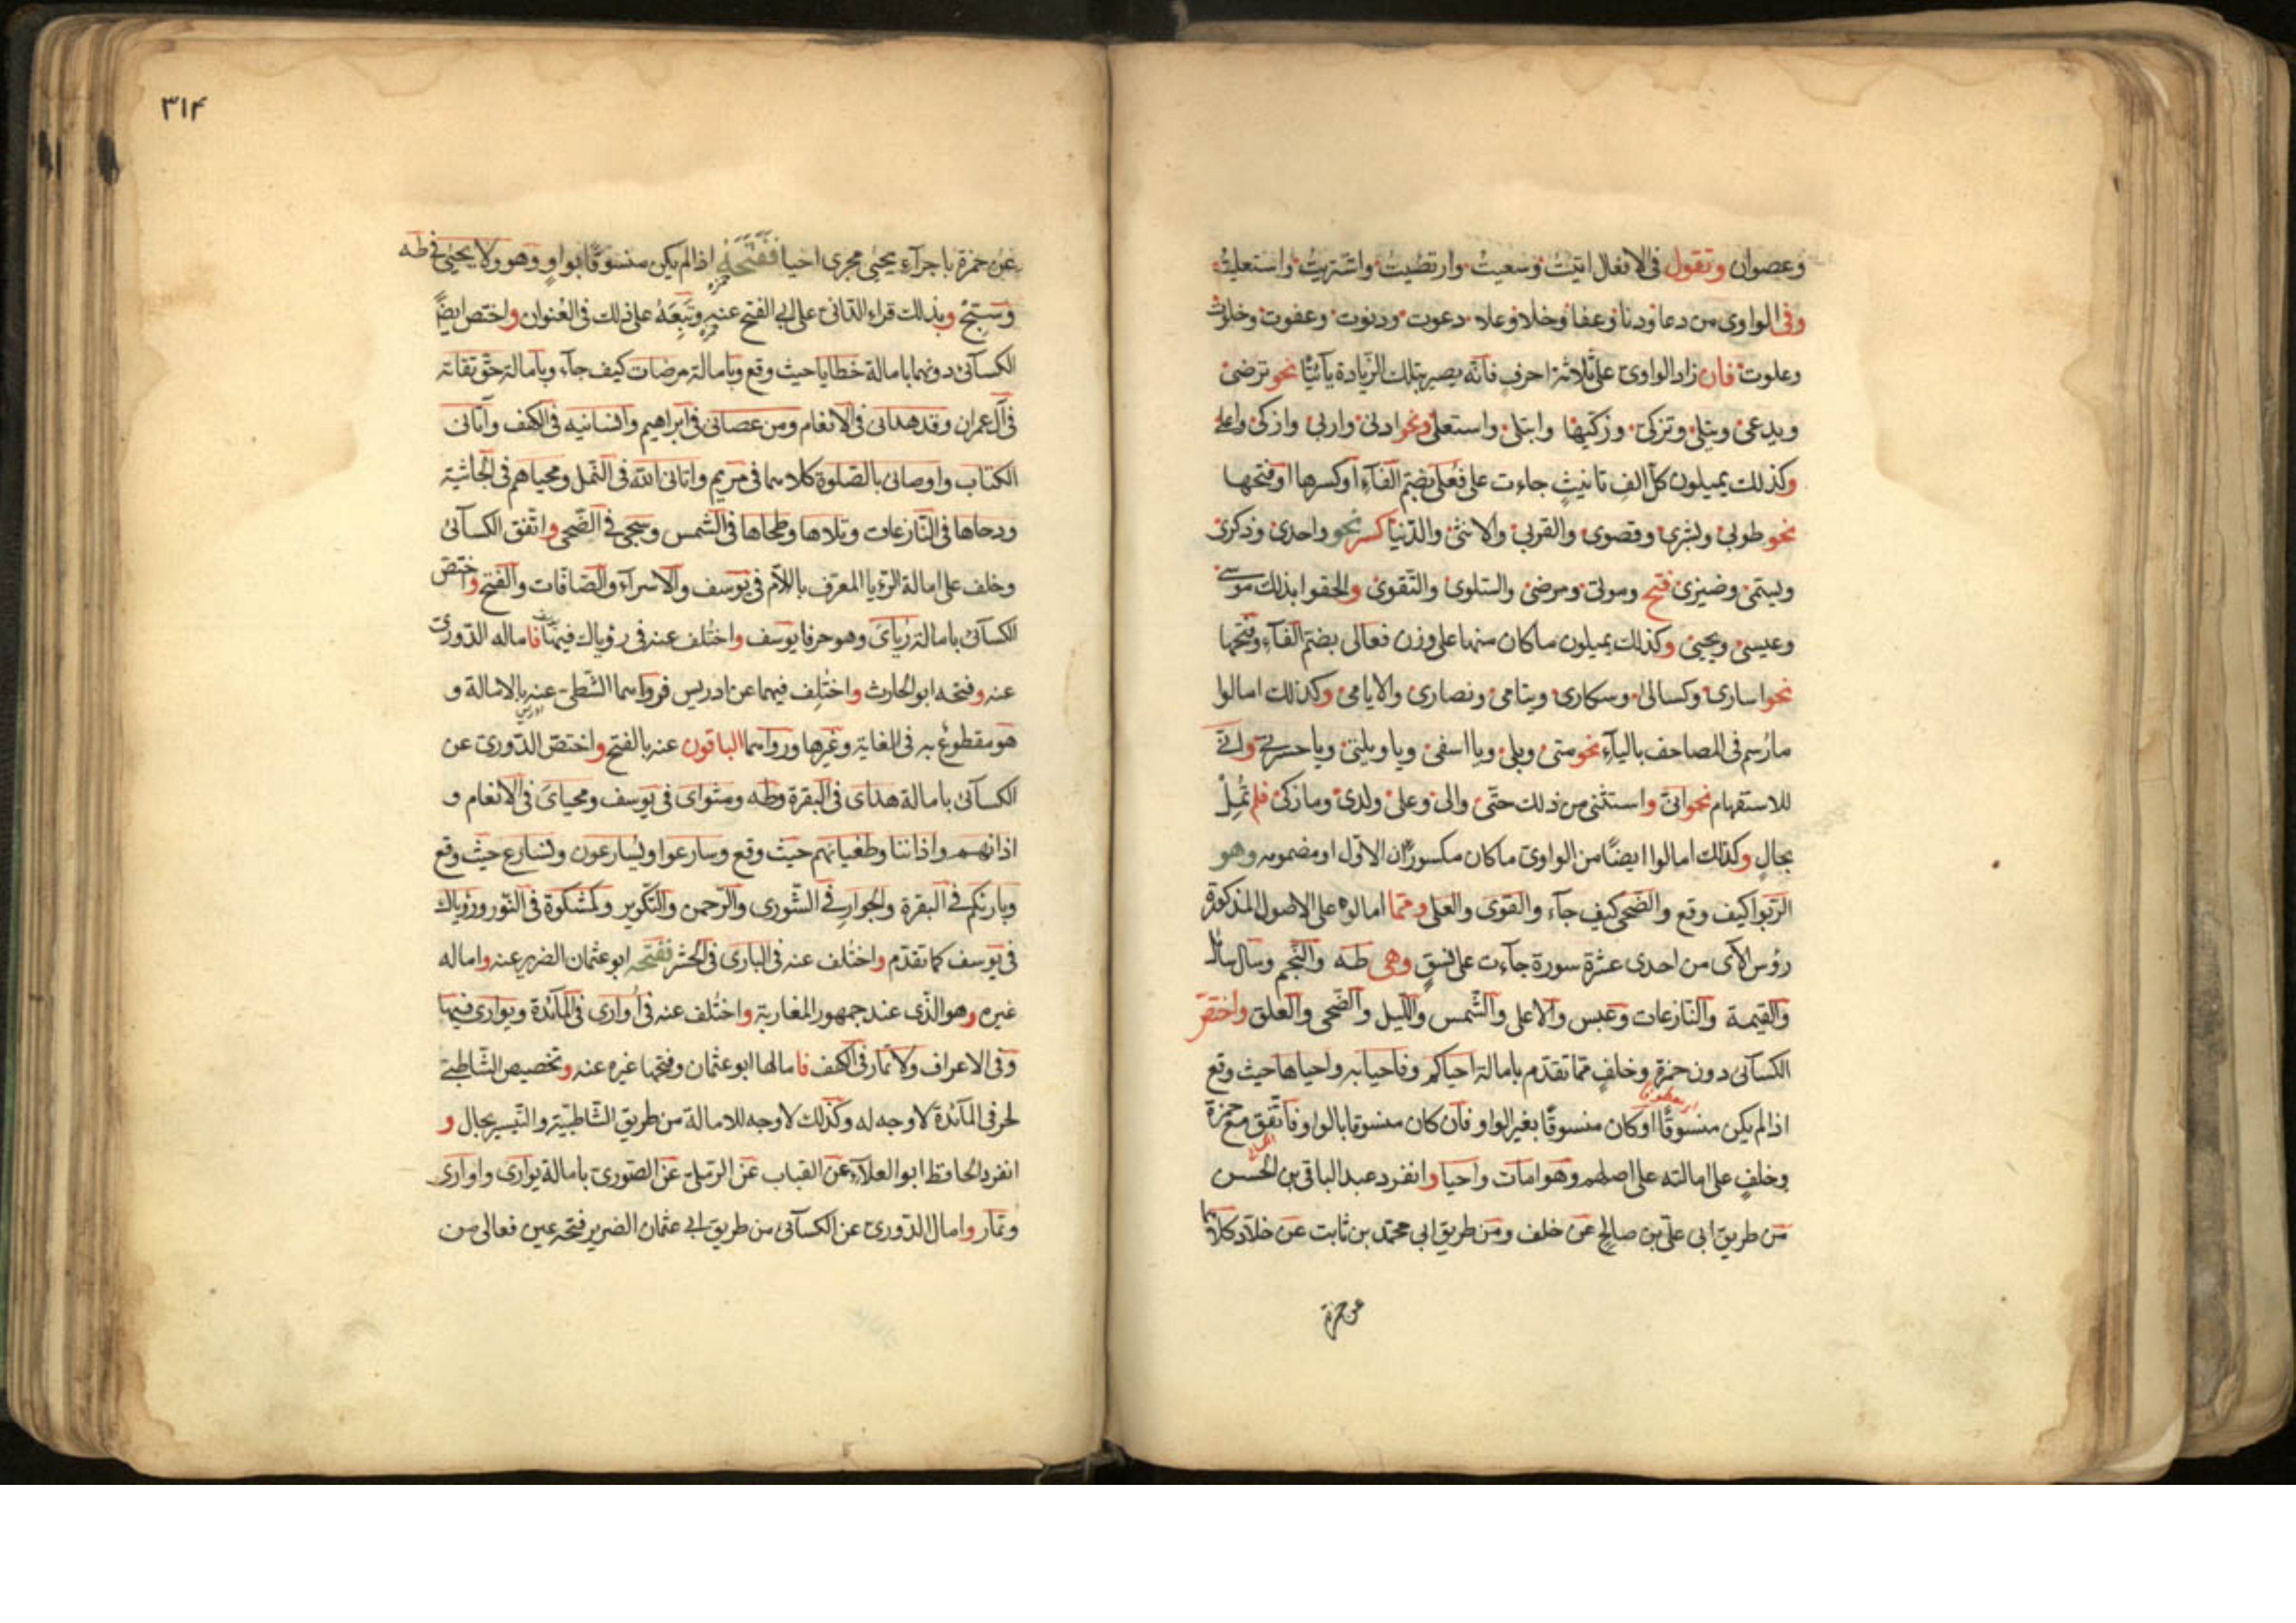 وعصوان وتقول في الافعال اتيت وسعيت وارتضيت واشتريت واستعليت
وفي الواوى من دعا ودنا وعفا وخلا وعلا دعوت ودنوت وعفوت وخلوت
وعلوت فان زاد الواوى على ثلاثة احرف فانه يصير بتلك الزيادة يآئيا نحو ترضى
ويدعى ويتلى وتزكى وزكيها وابتلى واستعلى ونحو ادنى واربى وازكى واعلى
وكذلك يميلون كل الف تانيث جاءت على فعلى بضم الفآء او كسرها او فتحها
نحو طوبى وبشرى وقصوى والقربى والانثى والدنيا كسر نحو واحدى وذكرى
وسيمى وضيزى فتح وموتى ومرضى والسلوى والتقوى والحقوا بذلك موسى
وعيسى ويحيى وكذلك يميلون ما كان منها على وزن فعالى بضم الفآء وفتحها
نحو اسارى وكسالى وسكارى ويتامى ونصارى والايامى وكذلك امالوا
ما رسم في المصاحف باليآء نحو متى وبلى ويا اسفى ويا ويلتى ويا حسرتى وانى
للاستفهام نحو انى واستثنى من ذلك حتى والى وعلى ولدى وما زكى فلم تمل
بحال وكذلك امالوا ايضا من الواوى ما كان مكسورًا الاول او مضمومه وهو
الربوا كيف وقع والضحى كيف جآء والقوى والعلى ومما امالوه على الاصول المذكورة
رؤس الآى من احدى عشرة سورة جآءت على نسق وهى طه والنجم وسأل سائل
والقيمة والنازعات وعبس والاعلى والشمس والليل والضحى والعلق واختص
الكسآئى دون حمزة وخلف مما تقدم بامالة احياكم وفاحيا به واحياها حيث وقع
اذا لم يكن منسوقًا او كان منسوقًا بغير الواو فان كان منسوقا بالواو فاتفق مع حمزة
وخلف على امالته على اصلهم وهو امات واحيا وانفرد عبد الباقى بن الحسن
من طريق ابى على بن صالح عن خلف ومن طريق ابى محمد بن ثابت عن خلاد كلاهما
عن حمزة
٣١۴
عن حمزة باجرآء يحيى مجرى احيا ففتحه اذا لم يكن منسوقًا بواو وهو ولا يحيى في طه
وسبح وبذلك قراء الدانى على ابى الفتح عنه وتبعه على ذلك في العنوان واختص ايضًا
الكسآئى دونهما بامالة خطايا حيث وقع وبامالة مرضات كيف جآء وبامالة حق تقاته
في آل عمران وقد هدانى في الانعام ومن عصانى في ابراهيم وانسانيه في الكهف وآتانى
الكتاب واوصانى بالصلوة كلاهما في مريم واتانى الله في النمل ومحياهم في الجاثية
ودحاها في النازعات وتلاها وطحاها في الشمس وسجى في الضحى واتفق الكسآئى
وخلف على امالة الرؤيا المعرف باللام في يوسف والاسرآء والصافات والفتح واختص
الكسآئى بامالة رؤياى وهو حرفا يوسف واختلف عنه في رؤياك فيها فاماله الدورى
عنه وفتحه ابو الحارث واختلف فيهما عن ادريس فرواهما الشطى عنه بالامالة و
هو مقطوع به في الغاية وغيرها ورواهما الباقون عنه بالفتح واختص الدورى عن
الكسآئى بامالة هداى في البقرة وطه ومثواى في يوسف ومحياى في الانعام و
اذانهم واذاننا وطغيانهم حيث وقع وسارعوا ويسارعون ونسارع حيث وقع
وبارئكم في البقرة والجوار في الشورى والرحمن والتكوير وكمشكوة في النور ورؤياك
في يوسف كما تقدم واختلف عنه في البارى في الحشر ففتحه ابو عثمان الضرير عنه واماله
غيره وهو الذى عند جمهور المغاربة واختلف عنه في اوارى في المآئدة ويوارى فيها
وفى الاعراف ولا تمار في الكهف فامالها ابو عثمان وفتحها غيره عنه وتخصيص الشاطبى
لحرفى المآئدة لا وجه له وكذلك لا وجه للامالة من طريق الشاطبية والتيسير بحال و
انفرد الحافظ ابو العلآء عن القباب عن الرملى عن الصورى بامالة يوارى واوارى
وتمار وامال الدورى عن الكسآئى من طريق ابى عثمان الضرير فتحه عين فعالى من